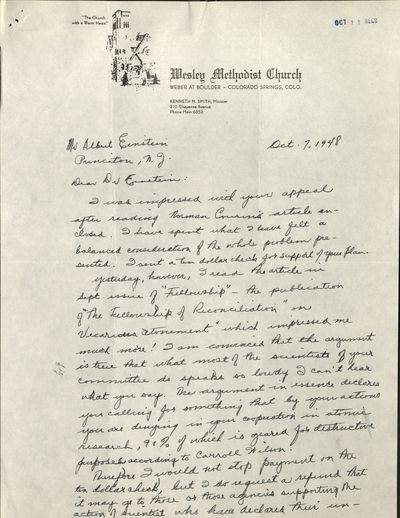 "The Church
with a Warm Heart"
OCT 11 RECD
Wesley Methodist Church
WEBER AT BOULDER • COLORADO SPRINGS, COLO.
KENNETH M. SMITH, Minister
210 Cheyenne Avenue
Phone Main 6053
Mr Albert Einstein
Princeton, N.J.
Oct. 7, 1948
Dear Dr Einstein:
I was impressed with your appeal
after reading Norman Cousins article en-
closed. I have spent what I have felt a
balanced consideration of the whole problem pre-
sented. I sent a ten dollar check for support of your plan.
Yesterday, however, I read the article in
Sept issue of "Fellowship" - the publication
of "The Fellowship of Reconciliation" on
"Vicarious atonement" which impressed me
much more! I am convinced that the argument
is true that what most of the scientists of your
committee do speaks so loudly I can't hear
what you say. The argument in essence declares
you calling for something that by your actions
you are denying in your cooperation in atomic
research, 90% of which is geared for destructive
purposes according to Carroll Wilson.
Therefore I would not stop payment on the
ten dollar check, but I do request a refund that
it may go to those or those agencies supporting the
action of scientist who have declared their un-